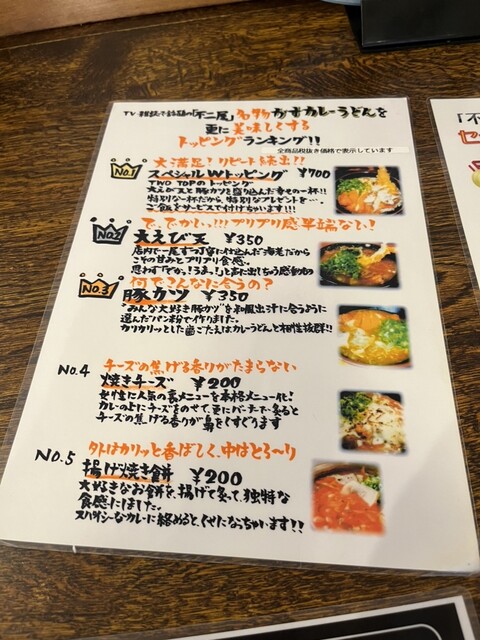 TV・雑誌で話題の「不二屋」名物かすカレーうどんを
更に美味しくする
トッピングランキング!!
全商品税抜き価格で表示しています
No.1
大満足!リピート続出!!
スペシャルWトッピング ¥700
TWO TOPのトッピング
大えび天と豚カツを盛り込んだ幸せの一杯!!
特別な一杯だから、特別なプレゼントを…。
ご飯をサービスで付けちゃいます!!!
No.2
で、でかい!!!プリプリ感半端ない!
大えび天 ¥350
店内で一尾ずつ丁寧に仕込んだ海老だから
この甘みとプリプリ食感。
思わず「でかっ!うまっ!」と声に出しちゃう感動の
No.3
何でこんなに合うの?
豚カツ ¥350
"みんな大好き豚カツ"を和風出汁に合うように
選んだパン粉で作りました。
カリカリッとした歯ごたえはカレーうどんと相性抜群!!
No.4
チーズの焦げる香りがたまらない
焼きチーズ ¥200
女性に人気の裏メニューを本格メニュー化!
カレーの上にチーズをのせて、更にバーナーで炙ると
チーズの焦げる香りが鼻をくすぐります
No.5
外はカリッと香ばしく、中はとろ〜り
揚げ焼き餅 ¥200
大好きなお餅を、揚げて炙って、独特な
食感にしました。
スパイシーなカレーに絡めると、くせになっちゃいます!!
「不
セ